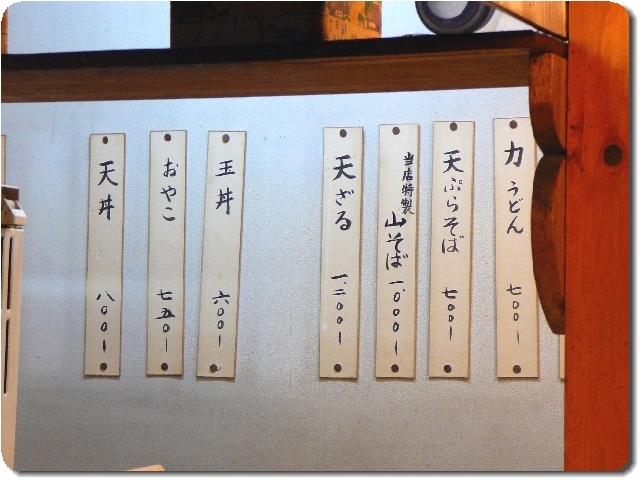 力うどん 七〇〇ー
天ぷらそば 七〇〇ー
当店特製 山そば 一、〇〇〇ー
天ざる 一、二〇〇ー
玉丼 六〇〇ー
おやこ 七五〇ー
天丼 八〇〇ー